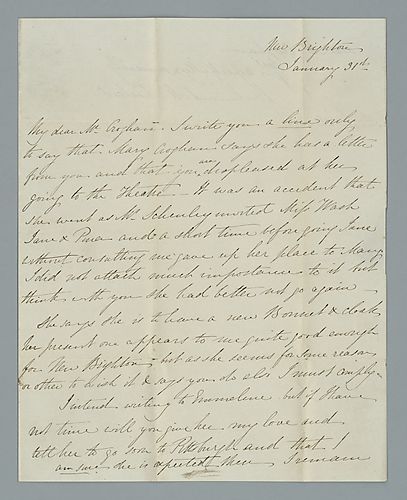 New Brighton
January 31st
My dear Mr Croghan. I write you a line only
to say that Mary Croghan says she has a letter
from you and that you are displeased at her
going to the Theatre – It was an accident that
she went as Mr Schenley invited Miss Wash
Jane & and a short time before going Jane
without consulting me gave up her place to Mary
I did not attach much importance to it but
think with you she had better not go again
She says she is to have a new Bonnet & cloak
her present one appears to me quite good enough
for New Brighton – but as she seems for some reason
or other to wish it & says you do also I must comply –
I intend writing to Emmeline but if I have
not time will you give her my love and
tell her to go soon to Pittsburgh and that I
am sure she is expected there I remain